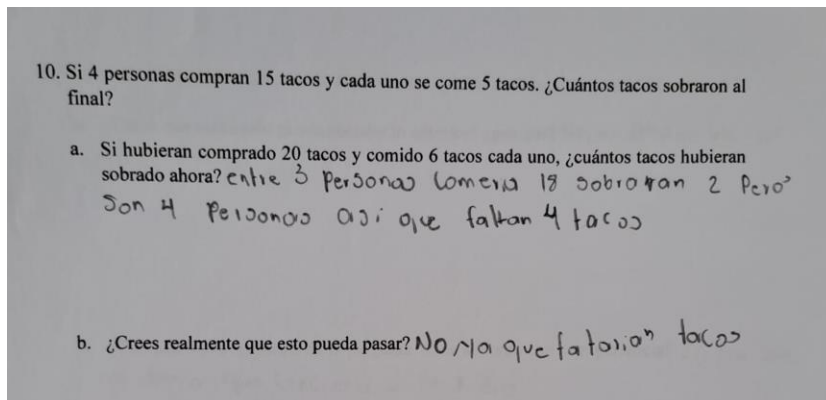 10. Si 4 personas compran 15 tacos y cada uno se come 5 tacos. ¿Cuántos tacos sobraron al
final?
a. Si hubieran comprado 20 tacos y comido 6 tacos cada uno, ¿cuántos tacos hubieran
sobrado ahora? entre 3 personas comeria 18 sobraran 2 Pero
Son 4 Personas asi que faltan 4 tacos
b. ¿Crees realmente que esto pueda pasar? No ya que fatarian tacos